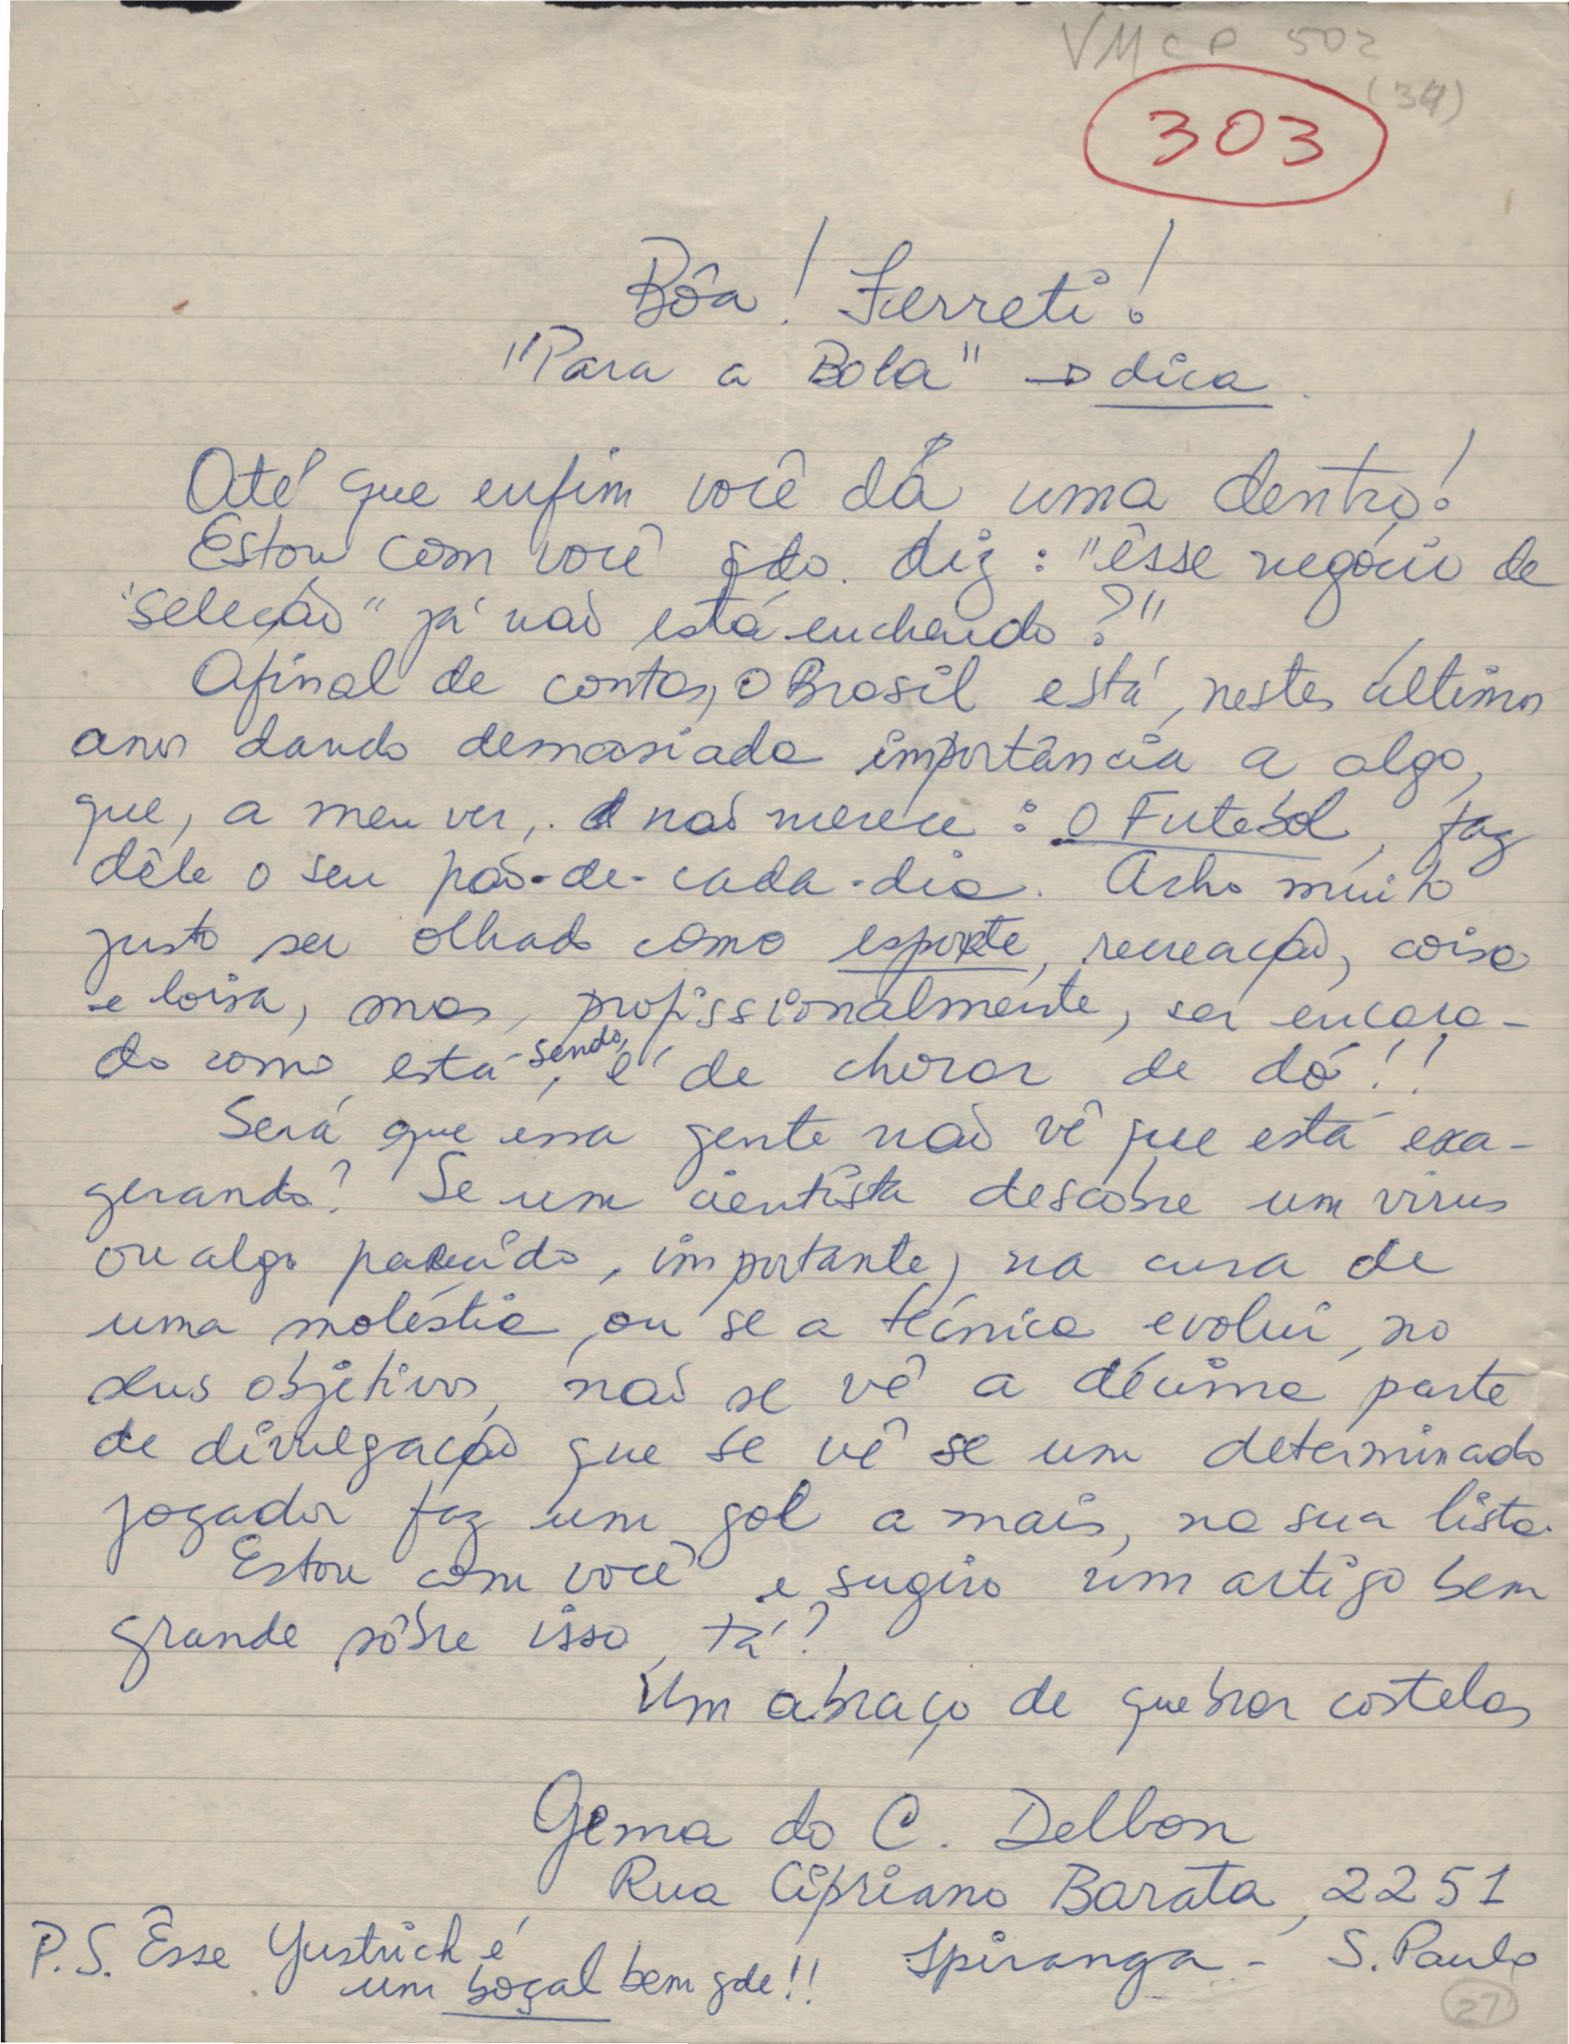 VMCP 502
(34)
303
Bôa! Ferreti!
"Para a Bola" → dica.
Até que enfim você dá uma dentro!
Estou com você qdo. diz: "êsse negócio de
"seleção" já não está enchendo?"
Afinal de contas, o Brasil está, nestes últimos
anos dando demasiada importância a algo,
que, a meu ver, não merece: o Futebol, faz
dêle o seu pão-de-cada-dia. Acho muito
justo ser olhado como esporte, recreação, coisa
e loisa, mas, profissionalmente, ser encara-
do como está sendo, é de chorar de dó!!
Será que essa gente não vê que está exa-
gerando? Se um cientista descobre um virus
ou algo parecido, importante, na cura de
uma moléstia, ou se a técnica evolui, no
seus objetivos, não se vê a décima parte
de divulgação que se vê se um determinado
jogador faz um gol a mais, na sua lista.
Estou com você e sugiro um artigo bem
grande sôbre isso, tá?
Um abraço de quebrar costelas
Gema do C. Delbon
Rua Cipriano Barata, 2251
Ipiranga - S. Paulo
P.S. Êsse Yustrich é
um boçal bem gde!!
27